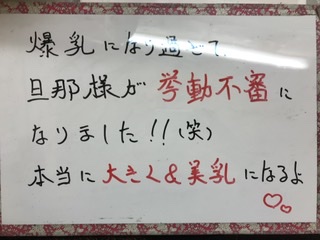 爆乳になり過ぎて、
旦那様が挙動不審に
なりました!!(笑)
本当に大きく&美乳になるよ